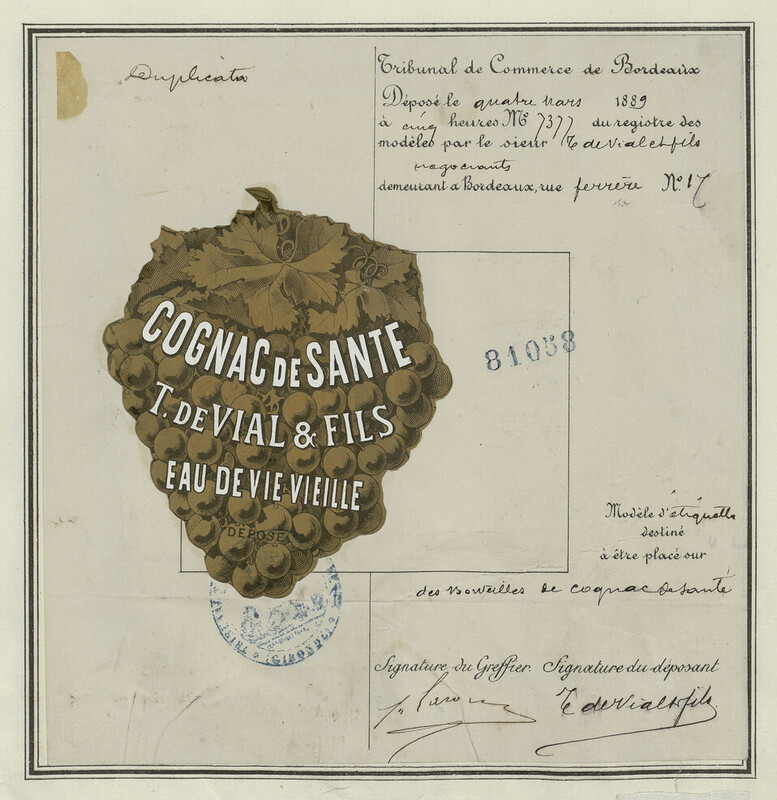 Duplicata
Tribunal de Commerce de Bordeaux
Déposé le quatre Mars 1889
à cinq heures No 7377 du registre des
modèles par le sieur T de Vial et fils
negociants
demeurant a Bordeaux, rue ferrère No. 17
COGNAC DE SANTE
T. DE VIAL & FILS
EAU DE VIE VIEILLE
DÉPOSÉ
81058
Modèle d'étiquette
destiné
à être placé sur
des Bouteilles de cognac de santé
GIRONDE
Signature du Greffier. Signature du déposant
T de Vial et fils